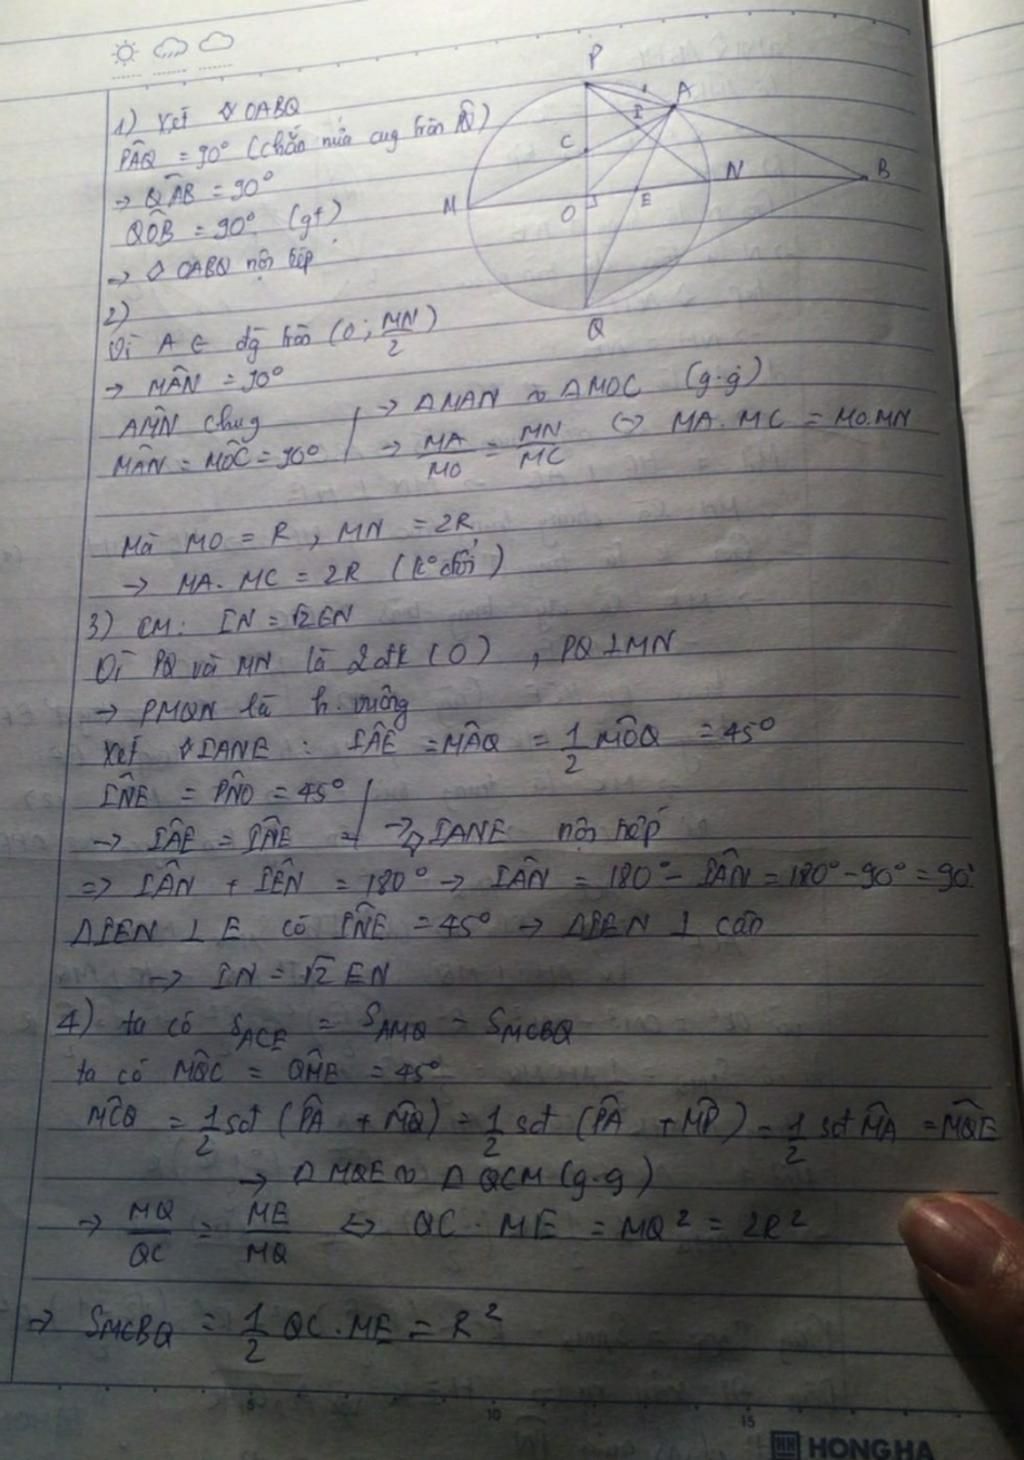 1) Xét ◊ OABQ
PÂQ = 90° (chắn nửa cug tròn PQ)
→ QÂB = 90°
QÔB = 90° (gt)
→ ◊ OABQ nội tiếp
P
A
I
C
M
O
E
N
B
Q
2)
Vì A ∈ đg tròn (O; MN/2)
→ MÂN = 90°
AM̂N chug
MÂN = MÔC = 90°
→ ΔMAN ~ ΔMOC (g.g)
→ MA/MO = MN/MC ↔ MA.MC = MO.MN
Mà MO = R, MN = 2R
→ MA.MC = 2R (k° đổi)
3) CM: IN = √2EN
Vì PQ và MN là 2 đk (O), PQ ⊥ MN
→ PMQN là h.vuông
Xét ◊IANE: IÂE = MÂQ = 1/2 MÔQ = 45°
IN̂E = PN̂O = 45°
→ IÂE = IN̂E = → ◊ IANE nội tiếp
=> IÂN + IÊN = 180° → IÂN = 180° - IÂN = 180° - 90° = 90°
ΔIEN ⊥ E có IN̂E = 45° → ΔIEN ⊥ cân
→ IN = √2 EN
4) ta có S_ACE = S_AMQ - S_MCEQ
ta có MQ̂C = QM̂E = 45°
MĈQ = 1/2 sđ (PA + MQ) = 1/2 sđ (PA + MP) = 1/2 sđ MA = MQ̂E
→ Δ MQE ~ Δ QCM (g.g)
→ MQ/QC = ME/MQ ↔ QC.ME = MQ² = 2R²
→ S_MCEQ = 1/2 QC.ME = R²
5 10 15
HH HONG HA